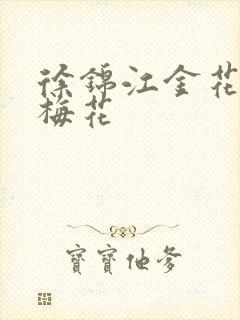 徐錦江金花
梅花
寶寶他爹